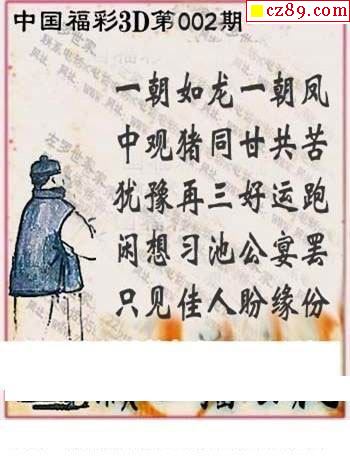 cz89.com
中国福彩3D第002期
一朝如龙一朝凤
中观猪同甘共苦
犹豫再三好运跑
闲想习池公宴罢
只见佳人盼缘份